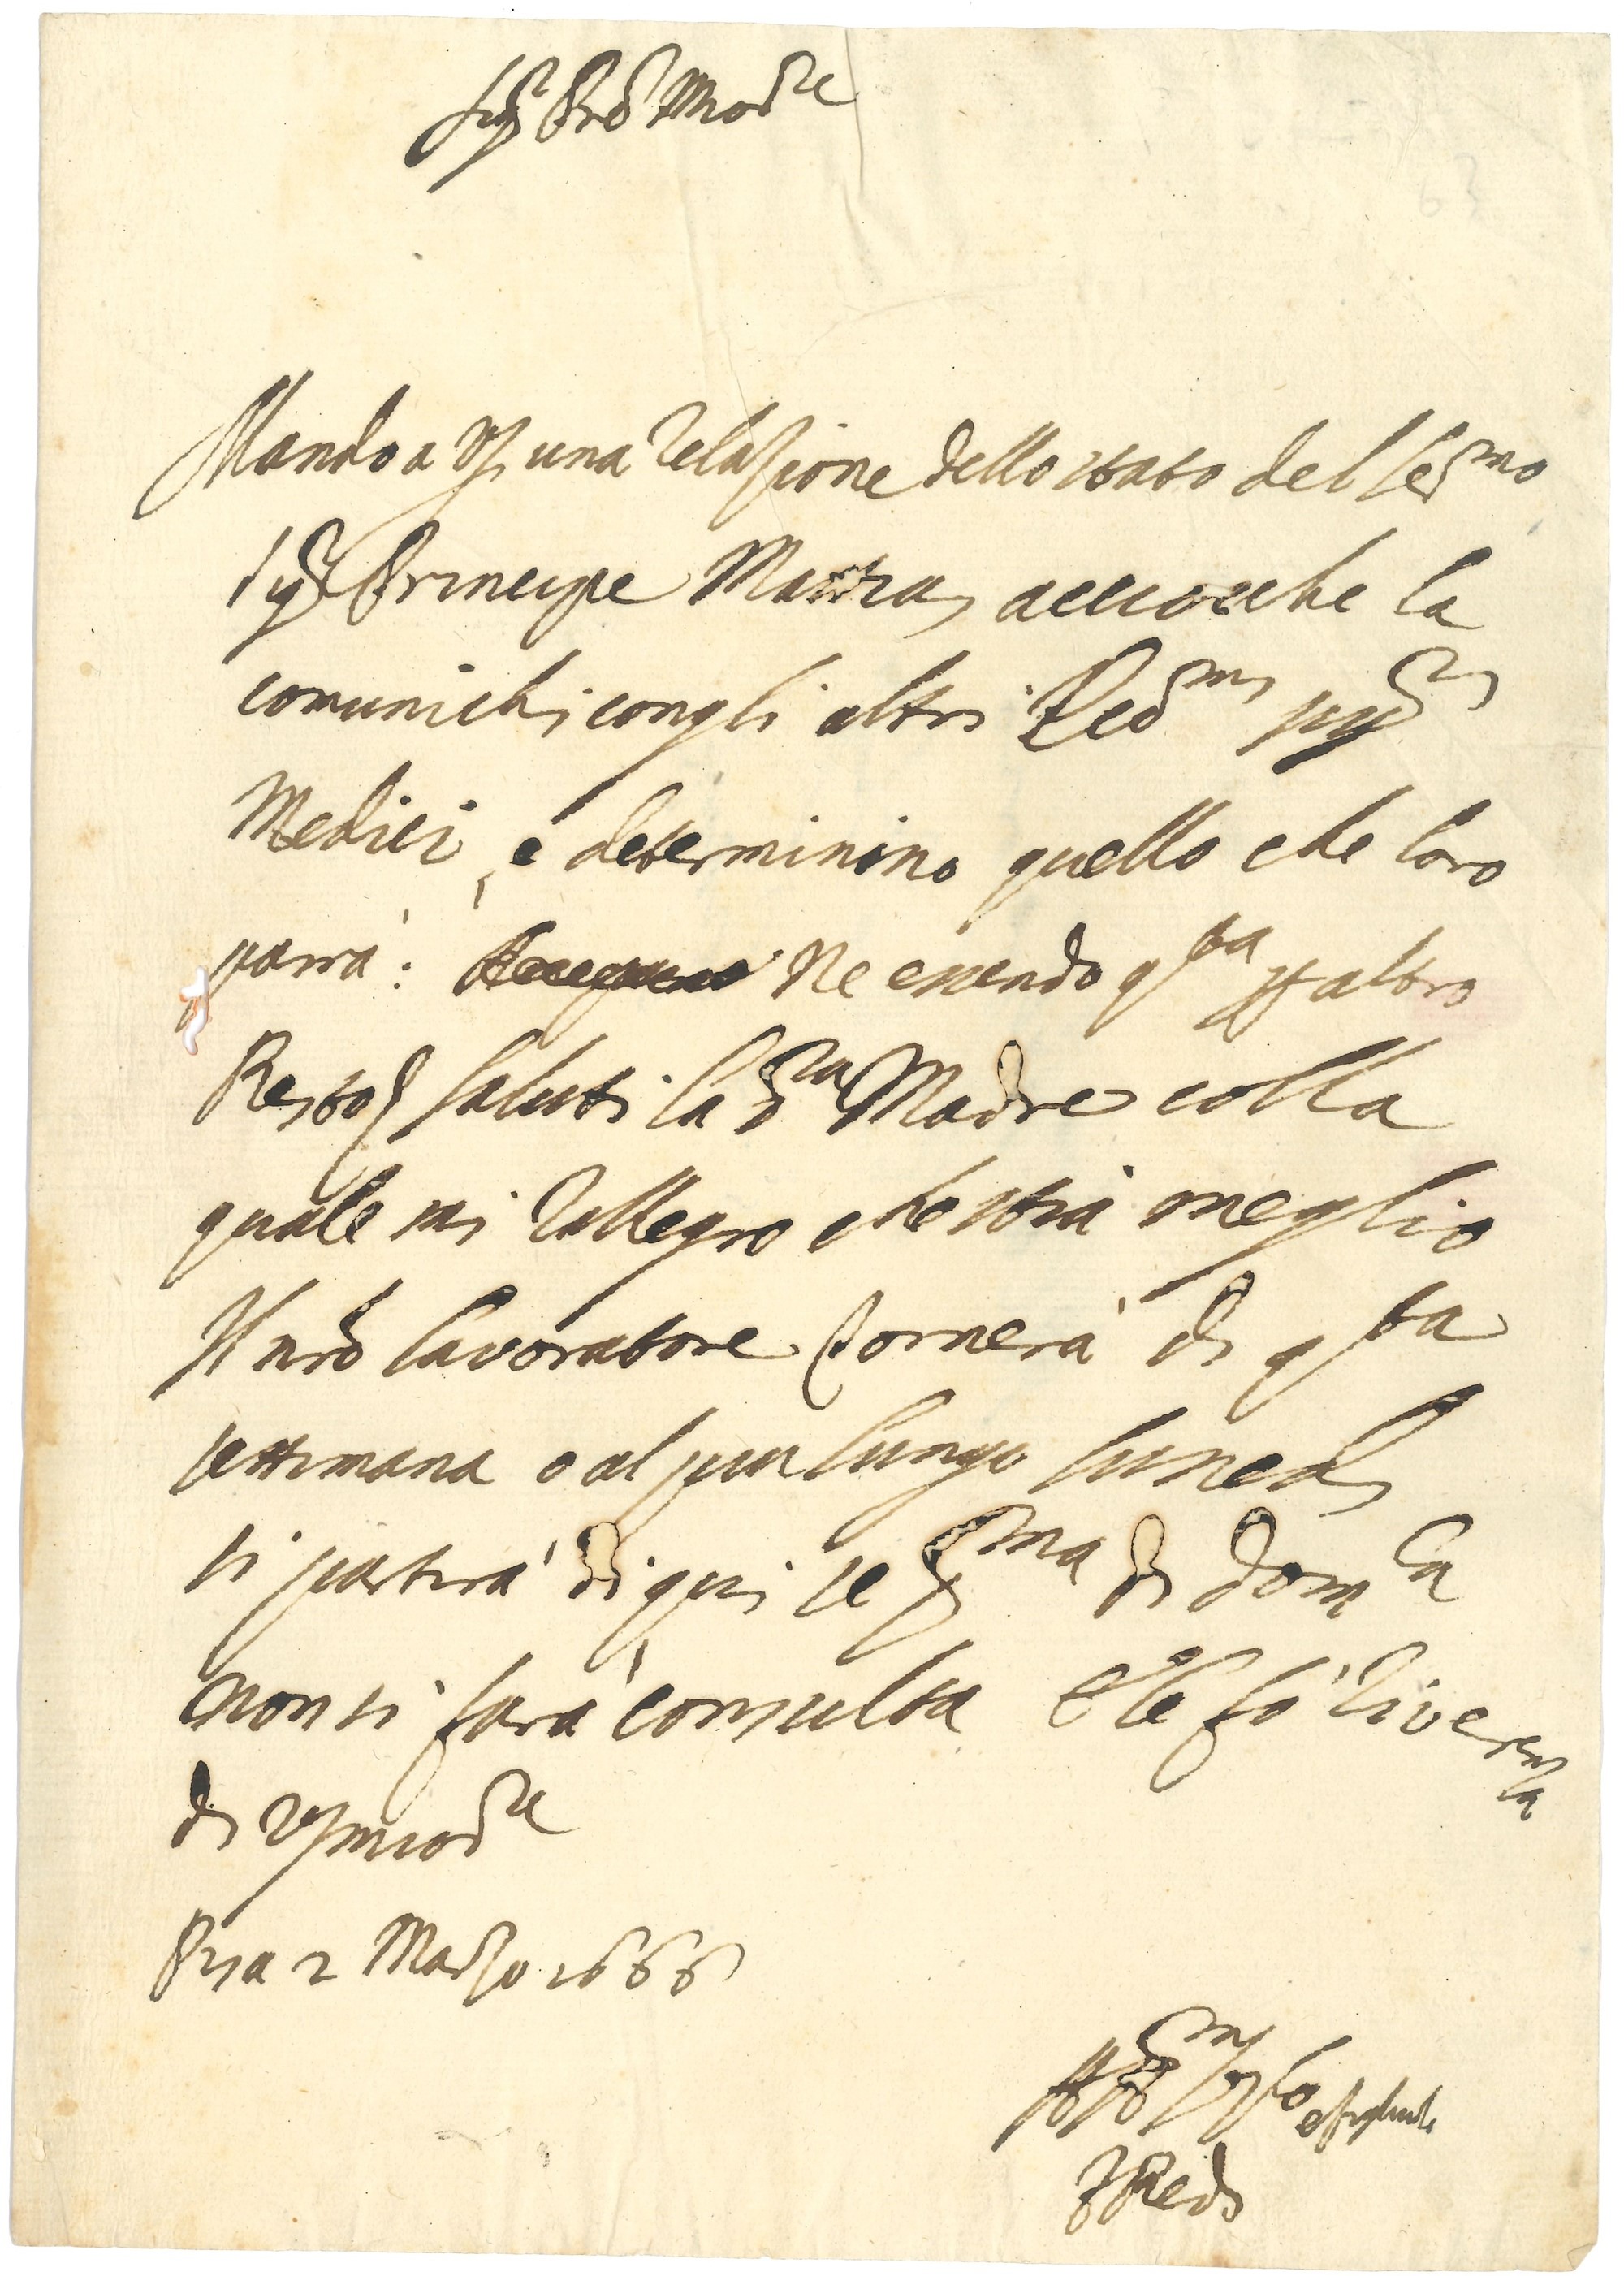 Sig.r P.re mio Car.e
Mando a VS. una relazione dello stato del Ser.mo
Sig.r Principe Mattias acciocche la
comunichi con gli altri Ecc.mi sig.ri
Medici, e determinino quello che loro
parrà: Ne essendo q.sta p altro
Resto. Saluti la S.ra Madre colla
quale mi rallegro che stia meglio
Il nro lavoratore tornerà di q.sta
settimana o al piu lungo lunedi
si partirà di qui se p.ma di dom.ca
non si farà consulta E le fò riverenza
di VS. mio Car.e
Pisa 2 Marzo 1666
figliuolo
F Redi